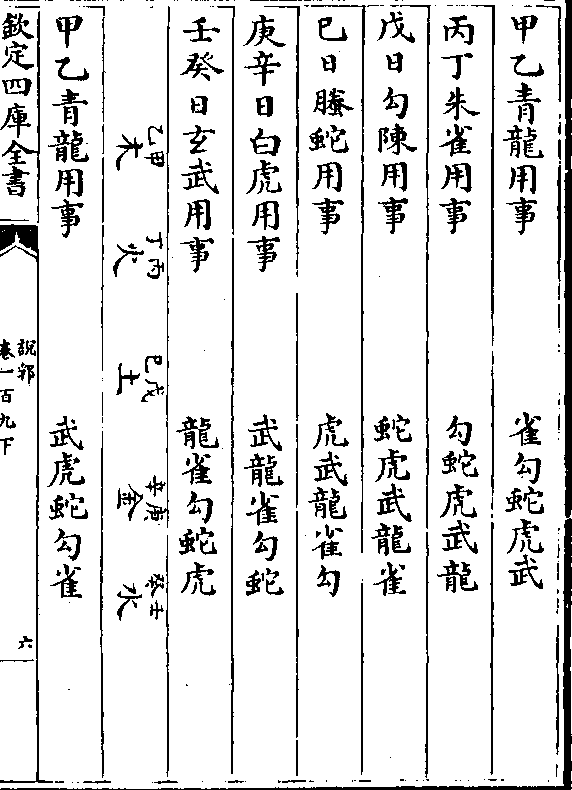 甲乙青龍用事　雀勾蛇虎武
丙丁朱雀用事　勾蛇虎武龍
戊日勾陳用事　蛇虎武龍雀
巳日螣蛇用事　虎武龍雀勾
庚辛日白虎用事　武龍雀勾蛇
壬癸日玄武用事　龍雀勾蛇虎
甲乙木　丙丁火　戊巳土　庚辛金　壬癸水
甲乙青龍用事　武虎蛇勾雀
欽定四庫全書
說郛
卷一百九下
六